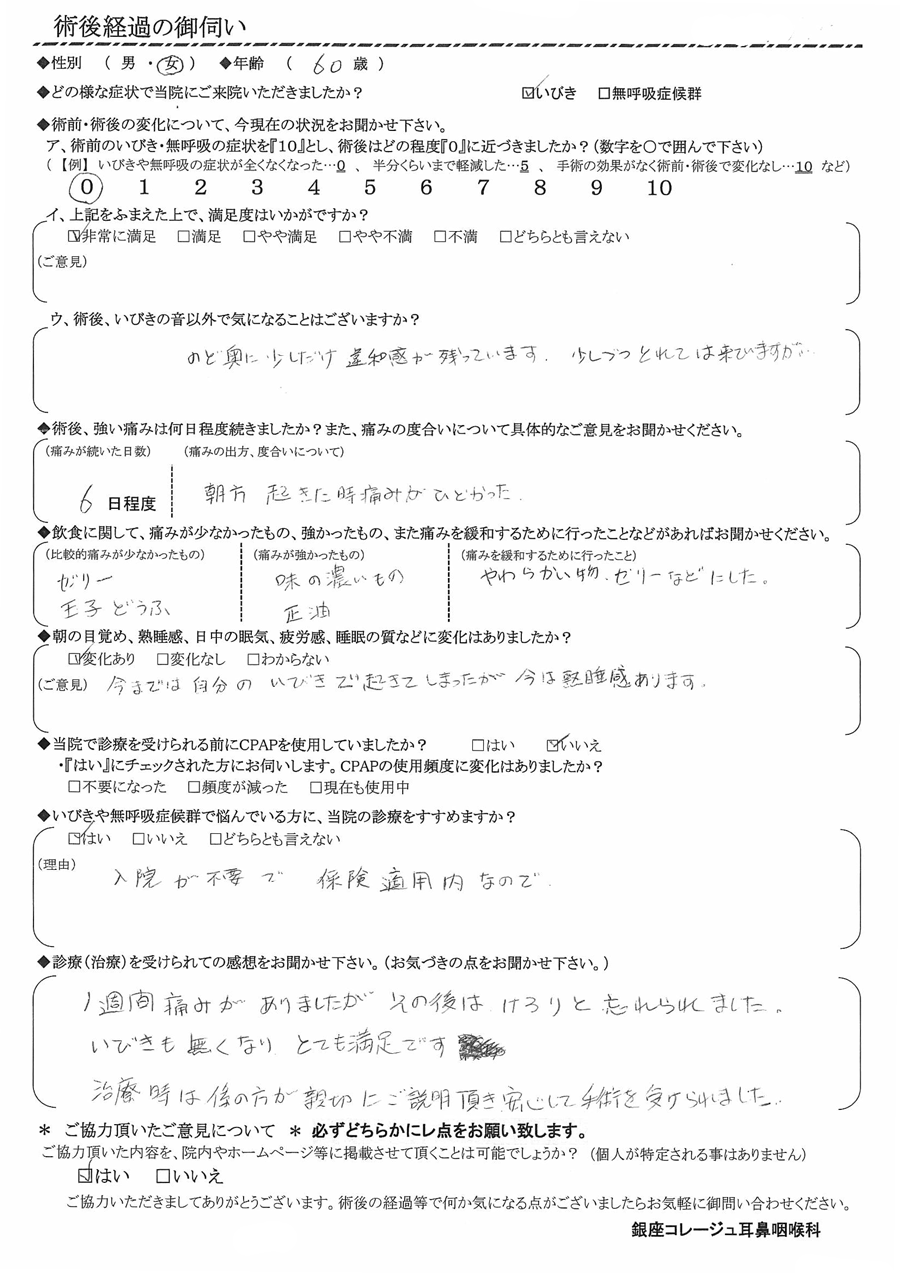 術後経過の御伺い
◆性別 ( 男 ・ 女 ) ◆年齢 ( 60 歳 )
◆どの様な症状で当院にご来院いただきましたか? ☑いびき □無呼吸症候群
◆術前・術後の変化について、今現在の状況をお聞かせ下さい。
ア、術前のいびき・無呼吸の症状を『10』とし、術後はどの程度『0』に近づきましたか?(数字を○で囲んで下さい)
(【例】 いびきや無呼吸の症状が全くなくなった…0 、 半分くらいまで軽減した…5 、 手術の効果がなく術前・術後で変化なし…10 など)
0 1 2 3 4 5 6 7 8 9 10
イ、上記をふまえた上で、満足度はいかがですか?
☑非常に満足 □満足 □やや満足 □やや不満 □不満 □どちらとも言えない
(ご意見)
ウ、術後、いびきの音以外で気になることはございますか?
のど奥に少しだけ違和感が残っています. 少しづつとれては来びますが…
◆術後、強い痛みは何日程度続きましたか?また、痛みの度合いについて具体的なご意見をお聞かせください。
(痛みが続いた日数) (痛みの出方、度合いについて)
6 日程度 朝方 起きた時痛みがひどかった.
◆飲食に関して、痛みが少なかったもの、強かったもの、また痛みを緩和するために行ったことなどがあればお聞かせください。
(比較的痛みが少なかったもの) (痛みが強かったもの) (痛みを緩和するために行ったこと)
ゼリー 味の濃いもの やわらかい物.ゼリーなどにした。
玉子どうふ 正油
◆朝の目覚め、熟睡感、日中の眠気、疲労感、睡眠の質などに変化はありましたか?
☑変化あり □変化なし □わからない
(ご意見) 今までは自分のいびきで起きてしまったが今は熟睡感あります。
◆当院で診療を受けられる前にCPAPを使用していましたか? □はい ☑いいえ
・『はい』にチェックされた方にお伺いします。CPAPの使用頻度に変化はありましたか?
□不要になった □頻度が減った □現在も使用中
◆いびきや無呼吸症候群で悩んでいる方に、当院の診療をすすめますか?
☑はい □いいえ □どちらとも言えない
(理由)
入院が不要で 保険適用内なので.
◆診療(治療)を受けられての感想をお聞かせ下さい。(お気づきの点をお聞かせ下さい。)
1週間痛みがありましたがその後はけろりと忘れられました。
いびきも無くなりとても満足です
治療時は係の方が親切にご説明頂き安心して手術を受けられました.
＊ ご協力頂いたご意見について ＊ 必ずどちらかにレ点をお願い致します。
ご協力頂いた内容を、院内やホームページ等に掲載させて頂くことは可能でしょうか? (個人が特定される事はありません)
☑はい □いいえ
ご協力いただきましてありがとうございます。術後の経過等で何か気になる点がございましたらお気軽に御問い合わせください。
銀座コレージュ耳鼻咽喉科